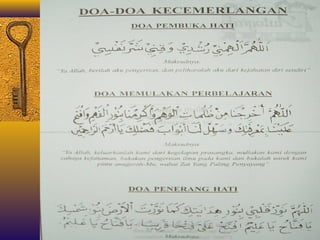 DOA-DOA KECEMERLANGAN
DOA PEMBUKA HATI
اللهم ألهمني رشدي وقني شر نفسي
Maksudnya
"Ya Allah, berilah aku pengertian, dan peliharalah aku dari kejahatan diri sendiri"
DOA MEMULAKAN PERBELAJARAN
اللهم أخرجنا من ظلمات الوهم وأكرمنا بنور الفهم وافتح
علينا بمعرفتك وسهل لنا أبواب فضلك يا أرحم الراحمين
Maksudnya
"Ya Allah, keluarkanlah kami dari kegelapan prasangka, muliakan kami dengan
cahaya kefahaman, bukakan pengertian ilmu pada kami dan bukalah untuk kami
pintu anugerah-Mu, wahai Zat Yang Paling Penyayang"
DOA PENERANG HATI
اللهم نور قلبي بنور هدايتك كما نورت الأرض بنور شمسك
يا فتاح يا عليم يا فتاح يا عليم
Maksudnya